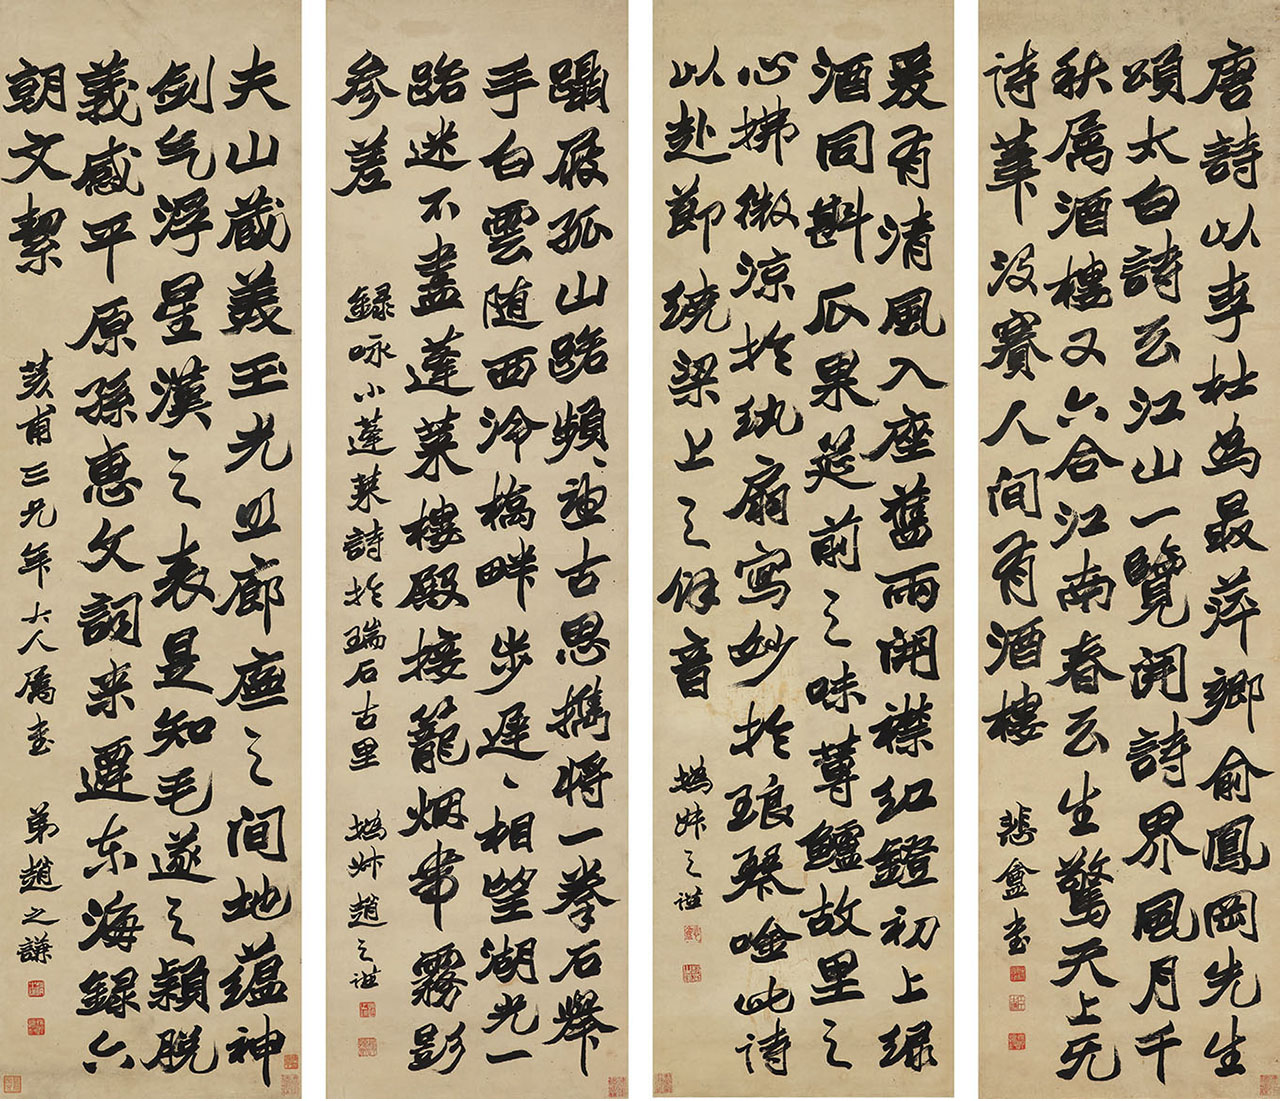 唐詩以李杜為最萍鄉俞鳳岡先生
頌太白詩云江山一覽開詩界風月千
秋屬酒樓又六合江南春云生驚天上无
詩筆没賽人间有酒樓
悲盦書
爰有清風入座舊雨開襟紅鐙初上緑
酒同斟瓜果筵前之味蓴鱸故里之
心拂微凉於紈扇寫妙於琅琴唫此詩
以赴節绕梁上之餘音
撝叔之谦
躡屐孤山路頻頻迴古思攜将一拳石舉
手白雲随西泠橋畔步遲遲相望湖光一
路迷不盡蓬莱樓殿接籠烟帯霧影
参差
録咏小蓬莱詩於瑞石古里
撝叔趙之谦
夫山藏美玉光照廊廡之间地蕴神
剑气浮星漢之表是知毛遂之穎脱
義感平原孫惠文詞来遷东海録六
朝文絜
荄甫三兄年大人属書
弟趙之謙